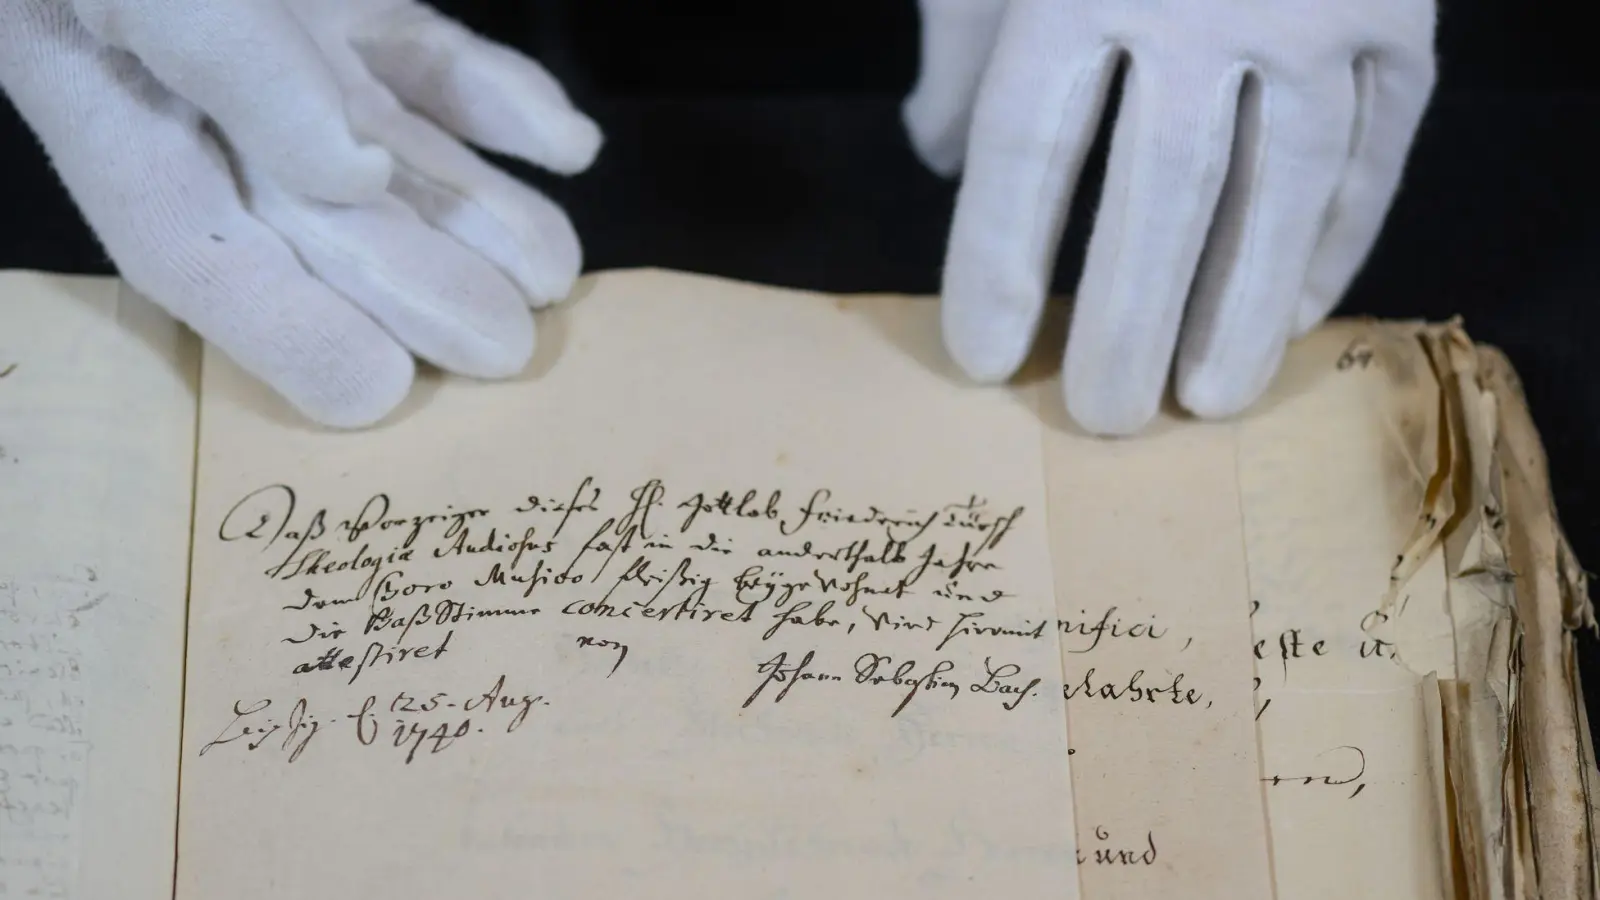 69.
Daß Vorzeiger dieses H. Gottlob Friedrich Türsch
Theologiæ Studiosus fast in die anderthalb Jahre
dem Choro Musico fleißig beygewohnet und
die Baß Stimme concertiret habe, wird hiermit
attestiret von
Johann Sebastian Bach.
Leipzig. d. 25. Aug.
1740.
nifici,
este
elahrte,
und